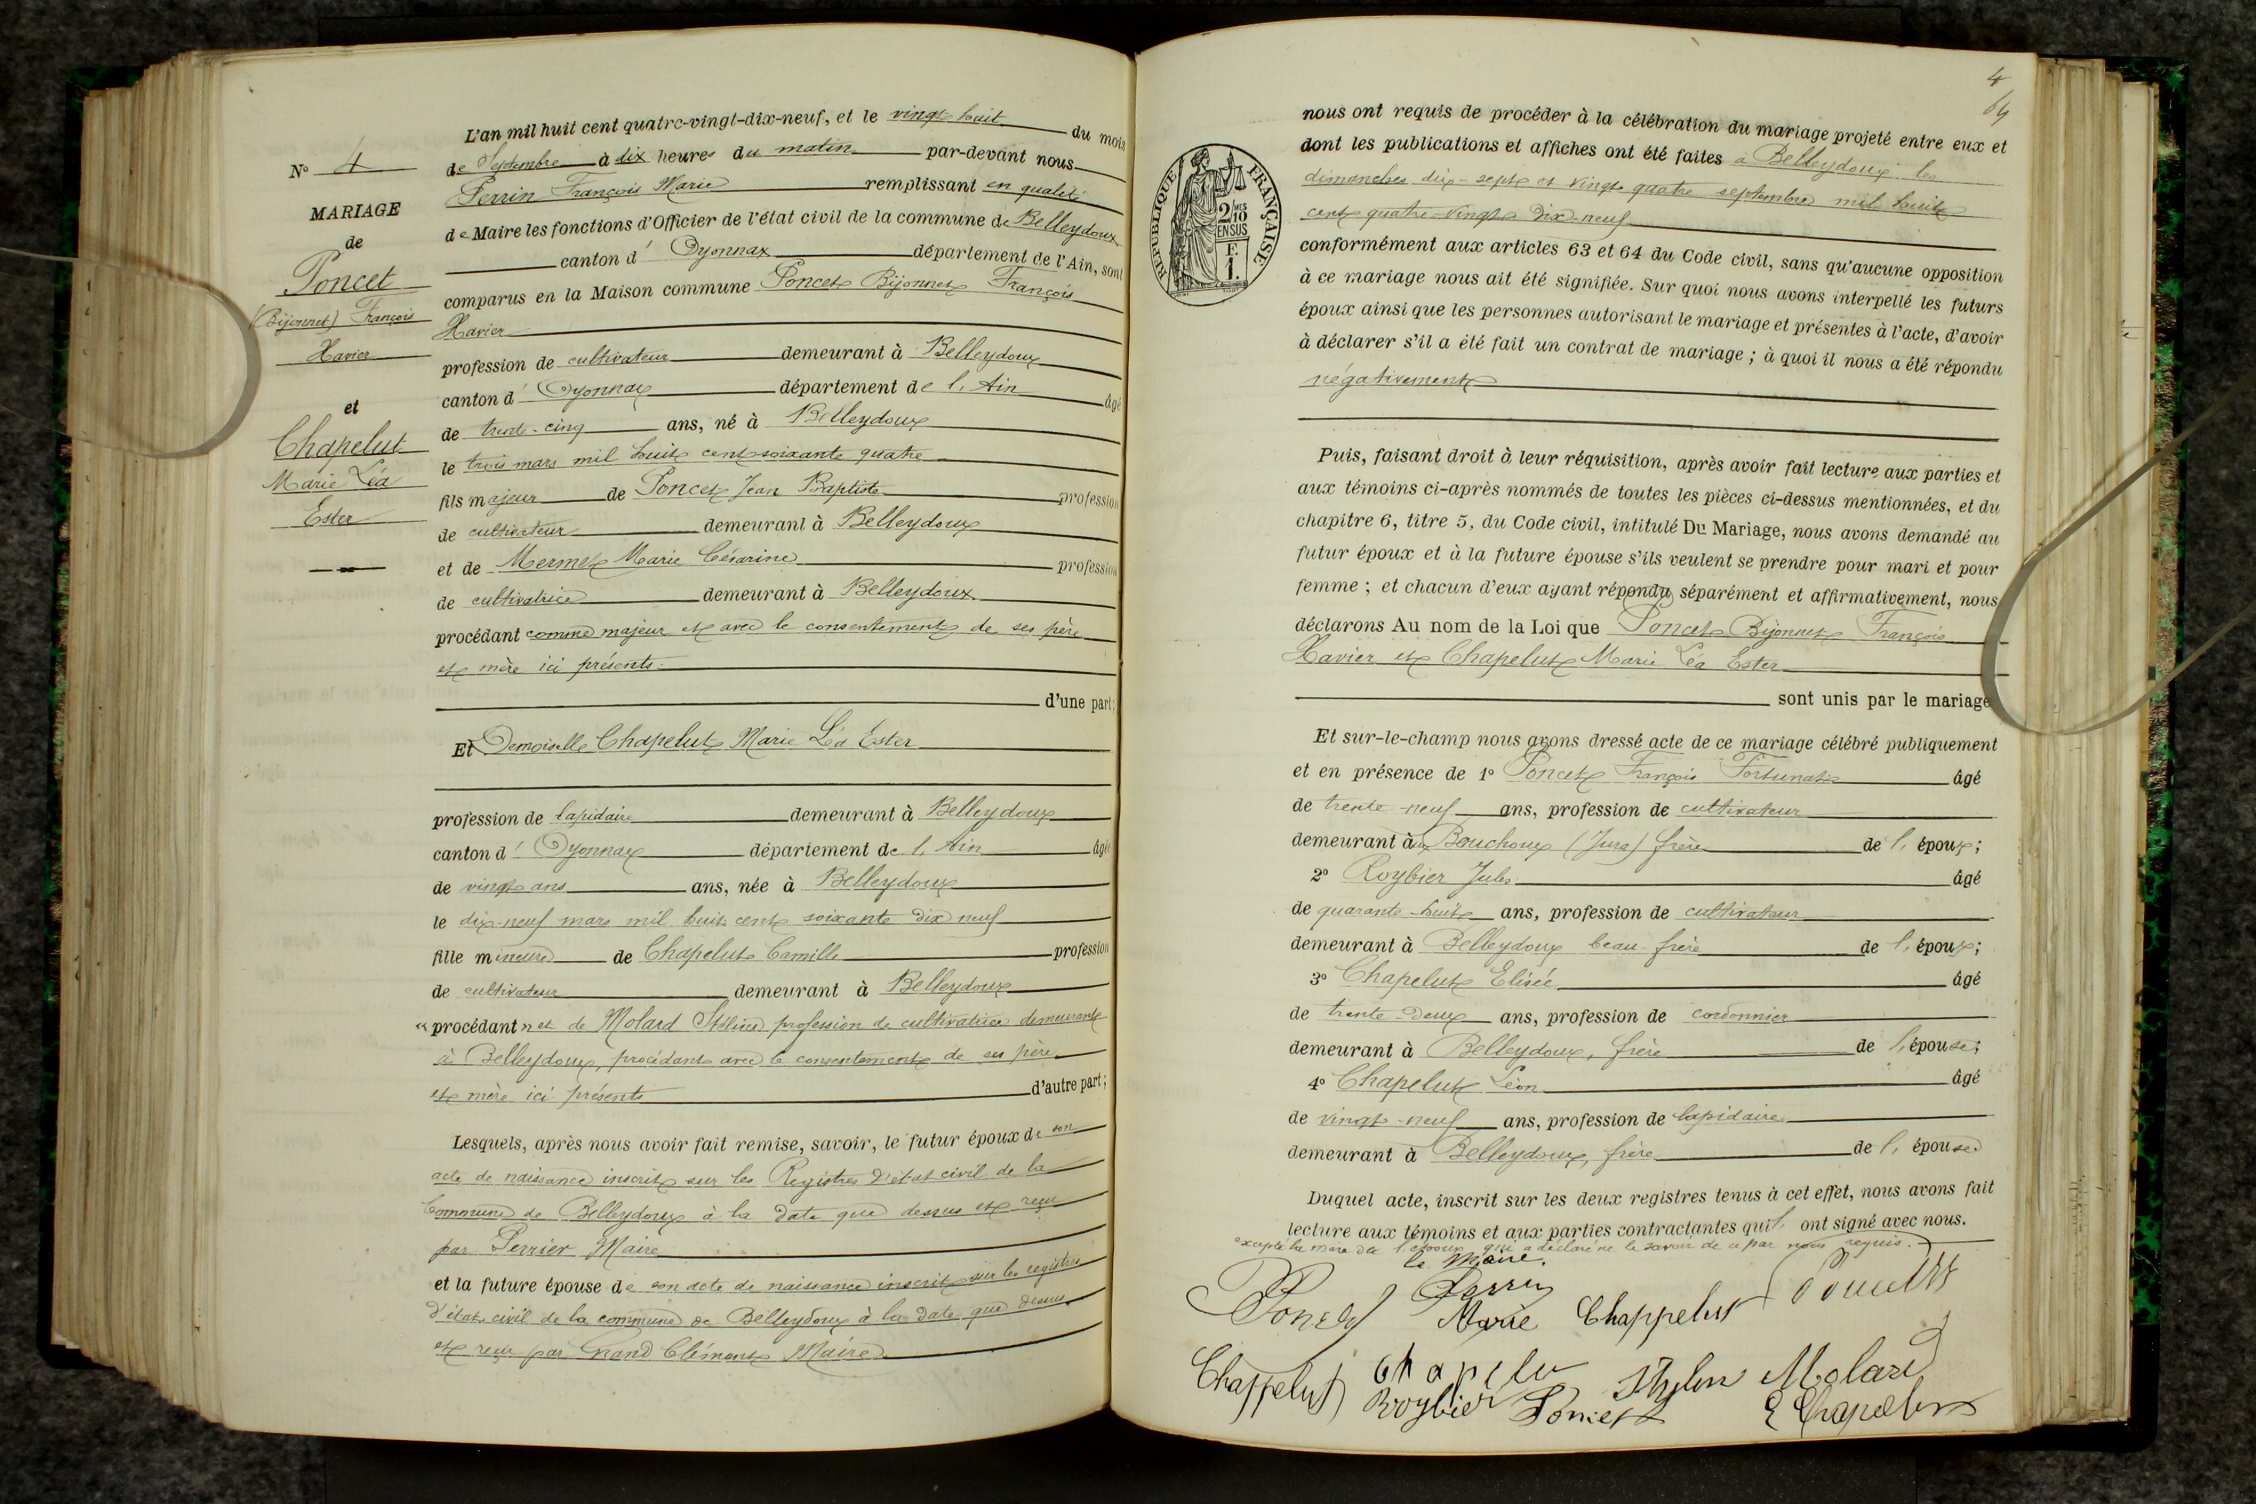 N° 4
MARIAGE
de
Poncet
(Bijonnet) François
Xavier
et
Chapelut
Marie Léa
Ester
L'an mil huit cent quatre-vingt-dix-neuf, et le vingt-huit du mois
de Septembre à dix heures du matin par-devant nous
Perrin François Marie remplissant en qualité
de Maire les fonctions d'Officier de l'état civil de la commune de Belleydoux
canton d' Oyonnax département de l'Ain, sont
comparus en la Maison commune Poncet Bijonnet François
Xavier
profession de cultivateur demeurant à Belleydoux
canton d' Oyonnax département de l'Ain âgé
de trente-cinq ans, né à Belleydoux
le trois mars mil huit cent soixante quatre
fils majeur de Poncet Jean Baptiste profession
de cultivateur demeurant à Belleydoux
et de Mermet Marie Césarine profession
de cultivatrice demeurant à Belleydoux
procédant comme majeur et avec le consentement de ses père
et mère ici présents
d'une part;
Et Demoiselle Chapelut Marie Léa Ester
profession de lapidaire demeurant à Belleydoux
canton d' Oyonnax département de l'Ain âgée
de vingt ans ans, née à Belleydoux
le dix-neuf mars mil huit cent soixante dix neuf
fille mineure de Chapelut Camille profession
de cultivateur demeurant à Belleydoux
"procédant" et de Molard profession de cultivatrice demeurant
à Belleydoux, procédant avec le consentement de ses père
et mère ici présents d'autre part;
Lesquels, après nous avoir fait remise, savoir, le futur époux de son
acte de naissance inscrit sur les Registres d'état civil de la
Commune de Belleydoux à la date que dessus et reçu
par Perrier Maire
et la future épouse de son acte de naissance inscrit sur les registres
d'état civil de la commune de Belleydoux à la date que dessus
et reçu par Grand Clément Maire
4
64
RÉPUBLIQUE FRANÇAISE
2/10 MES
EN SUS
F.
1.
nous ont requis de procéder à la célébration du mariage projeté entre eux et
dont les publications et affiches ont été faites à Belleydoux les
dimanches dix-sept et vingt quatre septembre mil huit
cent quatre-vingt Dix-neuf
conformément aux articles 63 et 64 du Code civil, sans qu'aucune opposition
à ce mariage nous ait été signifiée. Sur quoi nous avons interpellé les futurs
époux ainsi que les personnes autorisant le mariage et présentes à l'acte, d'avoir
à déclarer s'il a été fait un contrat de mariage; à quoi il nous a été répondu
négativement
Puis, faisant droit à leur réquisition, après avoir fait lecture aux parties et
aux témoins ci-après nommés de toutes les pièces ci-dessus mentionnées, et du
chapitre 6, titre 5, du Code civil, intitulé Du Mariage, nous avons demandé au
futur époux et à la future épouse s'ils veulent se prendre pour mari et pour
femme; et chacun d'eux ayant répondu séparément et affirmativement, nous
déclarons Au nom de la Loi que Poncet Bijonnet François
Xavier et Chapelut Marie Léa Ester
sont unis par le mariage
Et sur-le-champ nous avons dressé acte de ce mariage célébré publiquement
et en présence de 1° Poncet François Fortunat âgé
de trente-neuf ans, profession de cultivateur
demeurant aux Bouchoux (Jura) frère de l'époux;
2° Roybier Jules âgé
de quarante-huit ans, profession de cultivateur
demeurant à Belleydoux beau-frère de l'époux;
3° Chapelut Elisée âgé
de trente-deux ans, profession de cordonnier
demeurant à Belleydoux, frère de l'épouse;
4° Chapelut Léon âgé
de vingt-neuf ans, profession de lapidaire
demeurant à Belleydoux, frère de l'épouse
Duquel acte, inscrit sur les deux registres tenus à cet effet, nous avons fait
lecture aux témoins et aux parties contractantes qui ont signé avec nous.
excepté la mère de l'époux qui a déclaré ne le savoir de ce par nous requis.
le Maire,
Perrin
Poncet Marie Chappelut
Chappelut Chapelu Molard
Roybier Poncet E Chapelut